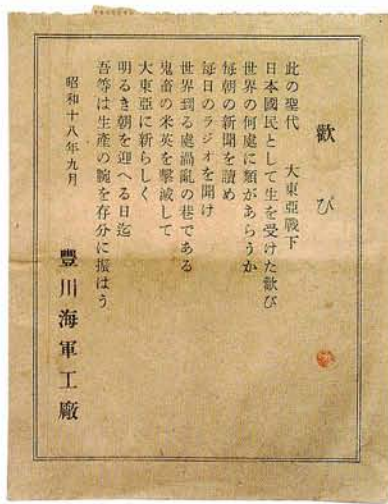 歓び
此の聖代　大東亞戰下
日本國民として生を受けた歓び
世界の何處に類があらうか
每朝の新聞を讀め
每日のラジオを聞け
世界到る處渦亂の巷である
鬼畜の米英を擊滅して
大東亞に新らしく
明るき朝を迎へる日迄
吾等は生產の腕を存分に振はう
昭和十八年九月
豐川海軍工廠